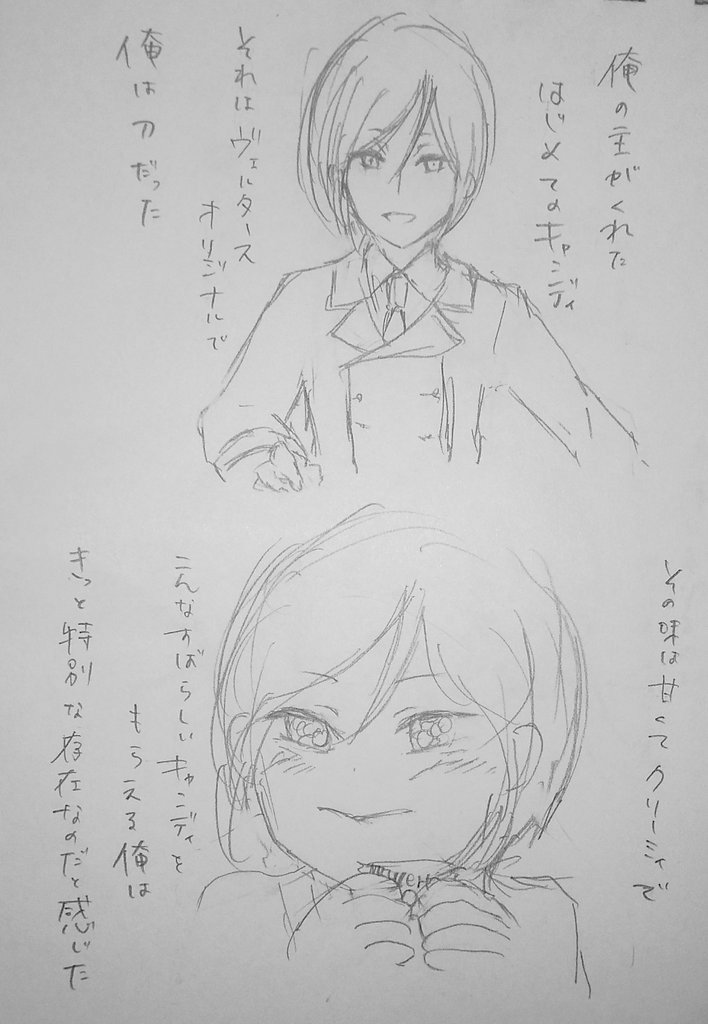 俺の主がくれた
はじめてのキャンディ
それはヴェルタース
オリジナルで
俺は刀だった
その味は甘くてクリーミィで
こんなすばらしいキャンディを
もらえる俺は
きっと特別な存在なのだと感じた